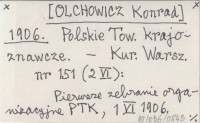 [OLCHOWICZ Konrad]
1906. Polskie Tow. Krajo-
znawcze. - Kur. Warsz.
nr 151 (2 VI):
Pierwsze zebranie orga-
nizacyjne PTK, 1 VI 1906.